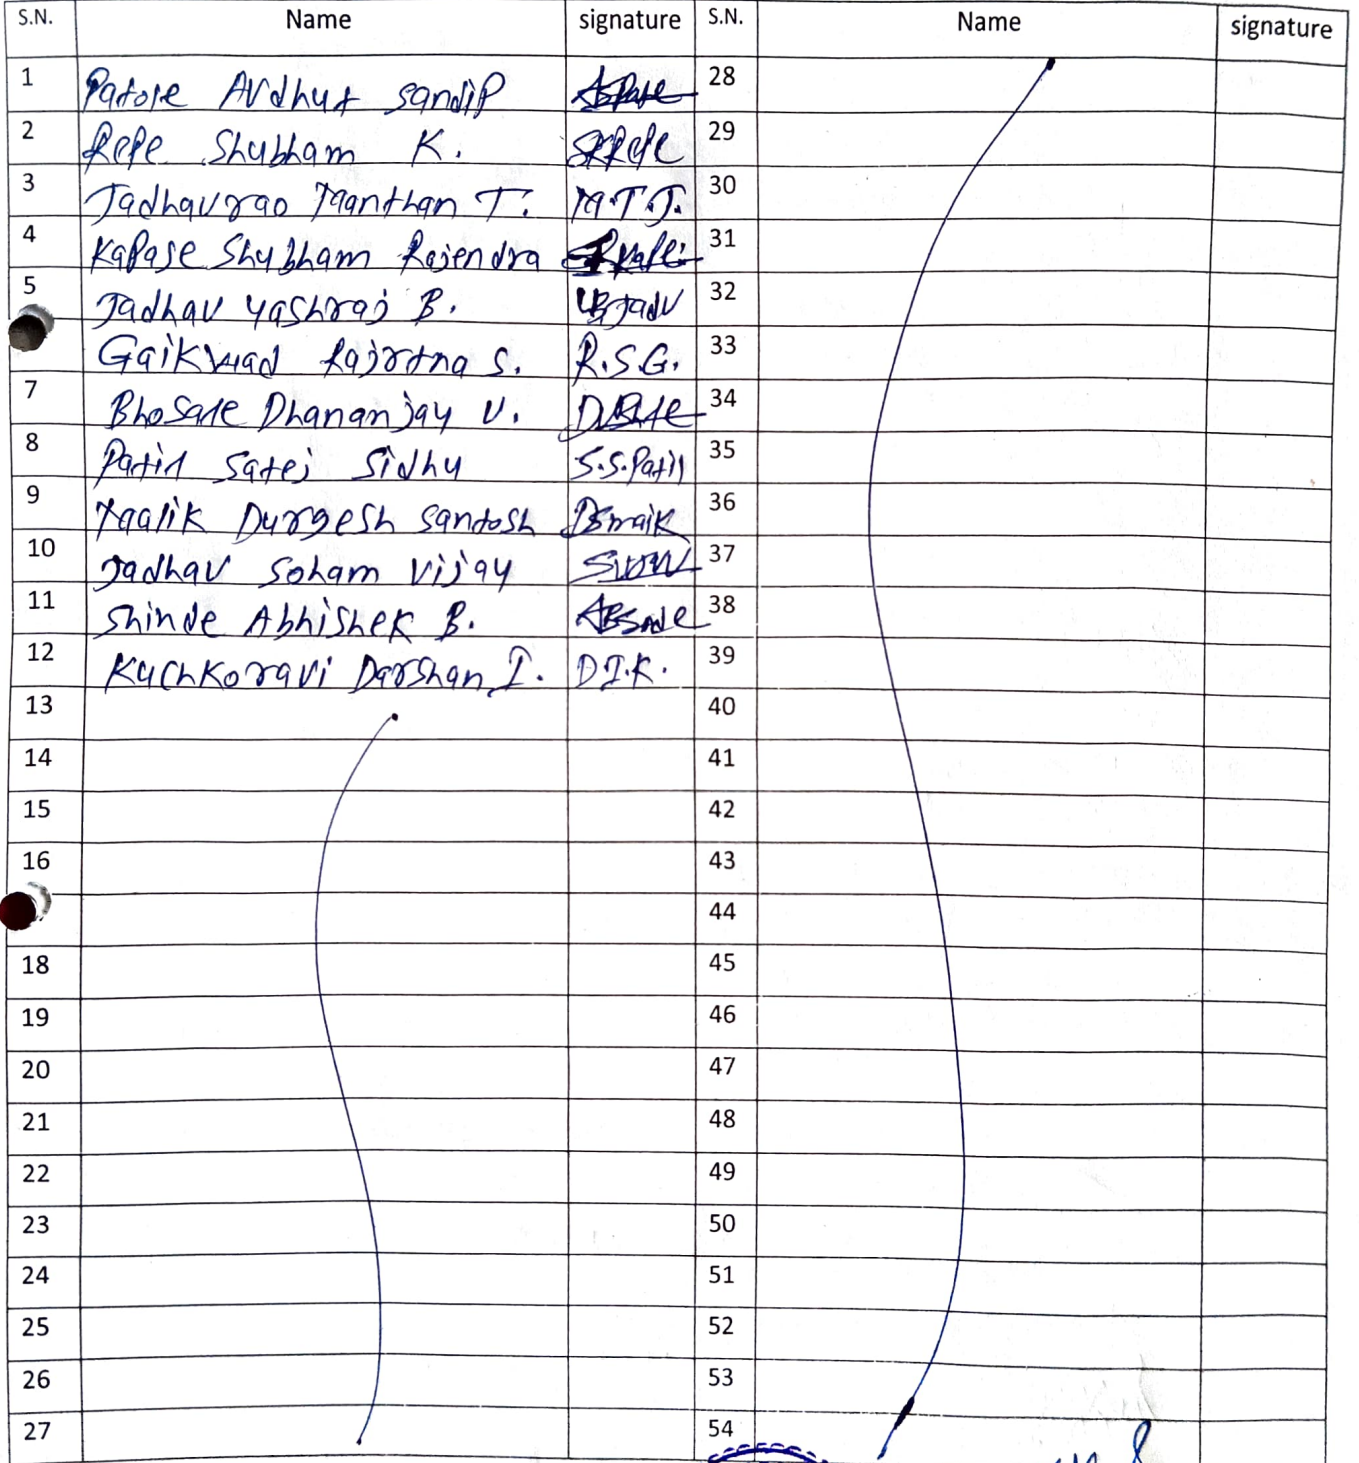 S.N. Name signature S.N. Name signature
1 Patole Avdhut Sandip 28
2 Repe Shubham K. SKRepe 29
3 Jadhavrao Manthan T. M.T.J. 30
4 Kapase Shubham Rajendra 31
5 Jadhav Yashraj B. 32
Gaikwad Rajratna S. R.S.G. 33
7 Bhosale Dhananjay V. 34
8 Patil Satej Sidhu S.S.Patil 35
9 Naik Durgesh Santosh DSnaik 36
10 Jadhav Soham Vijay 37
11 Shinde Abhishek B. 38
12 Kuchkoravi Darshan I. D.I.K. 39
13 40
14 41
15 42
16 43
44
18 45
19 46
20 47
21 48
22 49
23 50
24 51
25 52
26 53
27 54